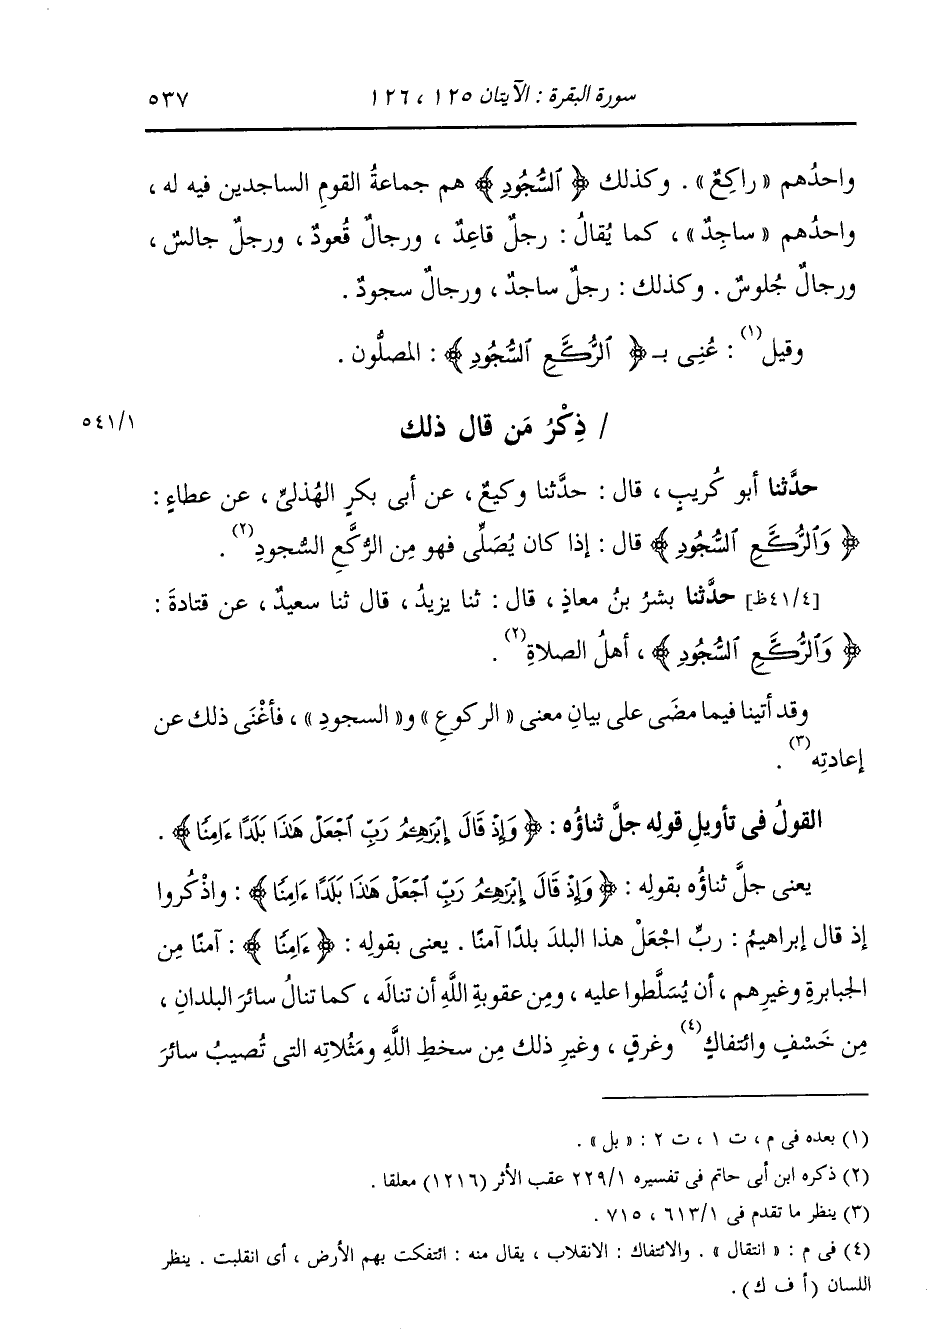 سورة البقرة : الآيتان ١٢٥ ، ١٢٦ ٥٣٧
واحدُهم « راكِعٌ » . وكذلك ﴿ ٱلسُّجُودِ ﴾ هم جماعةُ القومِ الساجدين فيه له ،
واحدُهم « ساجِدٌ » ، كما يُقالُ : رجلٌ قاعِدٌ ، ورجالٌ قُعودٌ ، ورجلٌ جالسٌ ،
ورجالٌ جُلوسٌ . وكذلك : رجلٌ ساجدٌ ، ورجالٌ سجودٌ .
وقيل(١) : عُنِى بـ ﴿ ٱلرُّكَّعِ ٱلسُّجُودِ ﴾ : المصلُّون .
/ ذِكْرُ مَن قال ذلك ٥٤١/١
حدَّثنا أبو كُريبٍ ، قال : حدَّثنا وكيعٌ ، عن أبى بكرٍ الهُذلىِّ ، عن عطاءٍ :
﴿ وَٱلرُّكَّعِ ٱلسُّجُودِ ﴾ قال : إذا كان يُصَلِّى فهو مِن الرُّكَّعِ السُّجودِ(٢) .
[٤١/٤ظ] حدَّثنا بشرُ بنُ معاذٍ ، قال : ثنا يزيدُ ، قال ثنا سعيدٌ ، عن قتادةَ :
﴿ وَٱلرُّكَّعِ ٱلسُّجُودِ ﴾ ، أهلُ الصلاةِ(٢) .
وقد أتينا فيما مضَى على بيانِ معنى « الركوعِ » و« السجودِ » ، فأغْنَى ذلك عن
إعادتِه(٣) .
القولُ فى تأويلِ قولِه جلَّ ثناؤُه : ﴿ وَإِذْ قَالَ إِبْرَٰهِـۧمُ رَبِّ ٱجْعَلْ هَـٰذَا بَلَدًا ءَامِنًا ﴾ .
يعنى جلَّ ثناؤُه بقولِه : ﴿ وَإِذْ قَالَ إِبْرَٰهِـۧمُ رَبِّ ٱجْعَلْ هَـٰذَا بَلَدًا ءَامِنًا ﴾ : واذْكُروا
إذ قال إبراهيمُ : ربِّ اجْعَلْ هذا البلدَ بلدًا آمنًا . يعنى بقولِه : ﴿ ءَامِنًا ﴾ : آمنًا مِن
الجبابرةِ وغيرِهم ، أن يُسَلَّطوا عليه ، ومِن عقوبةِ اللَّهِ أن تنالَه ، كما تنالُ سائرَ البلدانِ ،
مِن خَسْفٍ وائتفاكٍ(٤) وغرقٍ ، وغيرِ ذلك مِن سخطِ اللَّهِ ومَثُلاتِه التى تُصيبُ سائرَ
(١) بعده فى م ، ت ١ ، ت ٢ : « بل » .
(٢) ذكره ابن أبى حاتم فى تفسيره ٢٢٩/١ عقب الأثر (١٢١٦) معلقا .
(٣) ينظر ما تقدم فى ٦١٣/١ ، ٧١٥ .
(٤) فى م : « انتقال » . والائتفاك : الانقلاب ، يقال منه : ائتفكت بهم الأرض ، أى انقلبت . ينظر
اللسان (أ ف ك) .